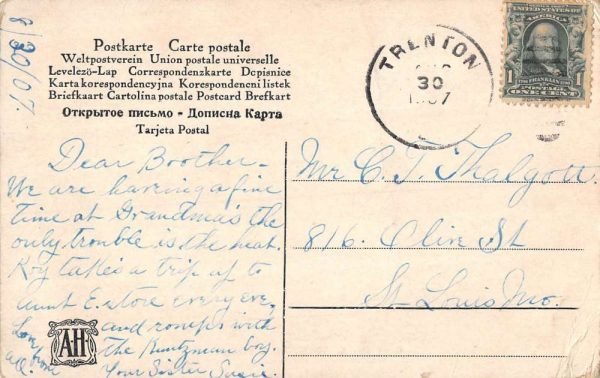 8/30/07.
Postkarte Carte postale
Weltpostverein Union postale universelle
Levelezö-Lap Correspondenzkarte Dopisnice
Karta korespondencyjna Korespondeneni listek
Briefkaart Cartolina postale Postcard Brefkort
Открытое письмо - Дописна Карта
Tarjeta Postal
TRENTON
AUG
30
1907
UNITED STATES OF AMERICA
1 FRANKLIN 1
POSTAGE
ONE CENT
Dear Boother -
We are having a fine
time at Grandma's the
only trouble is the heat.
Roy takes a trip up to
Aunt E. store every eve,
and romps with
the Kuntzman boy.
Your Sister Susie.
Love from
all
AH
Mr C. T. Thalgott.
816. Olive St
St Louis Mo.